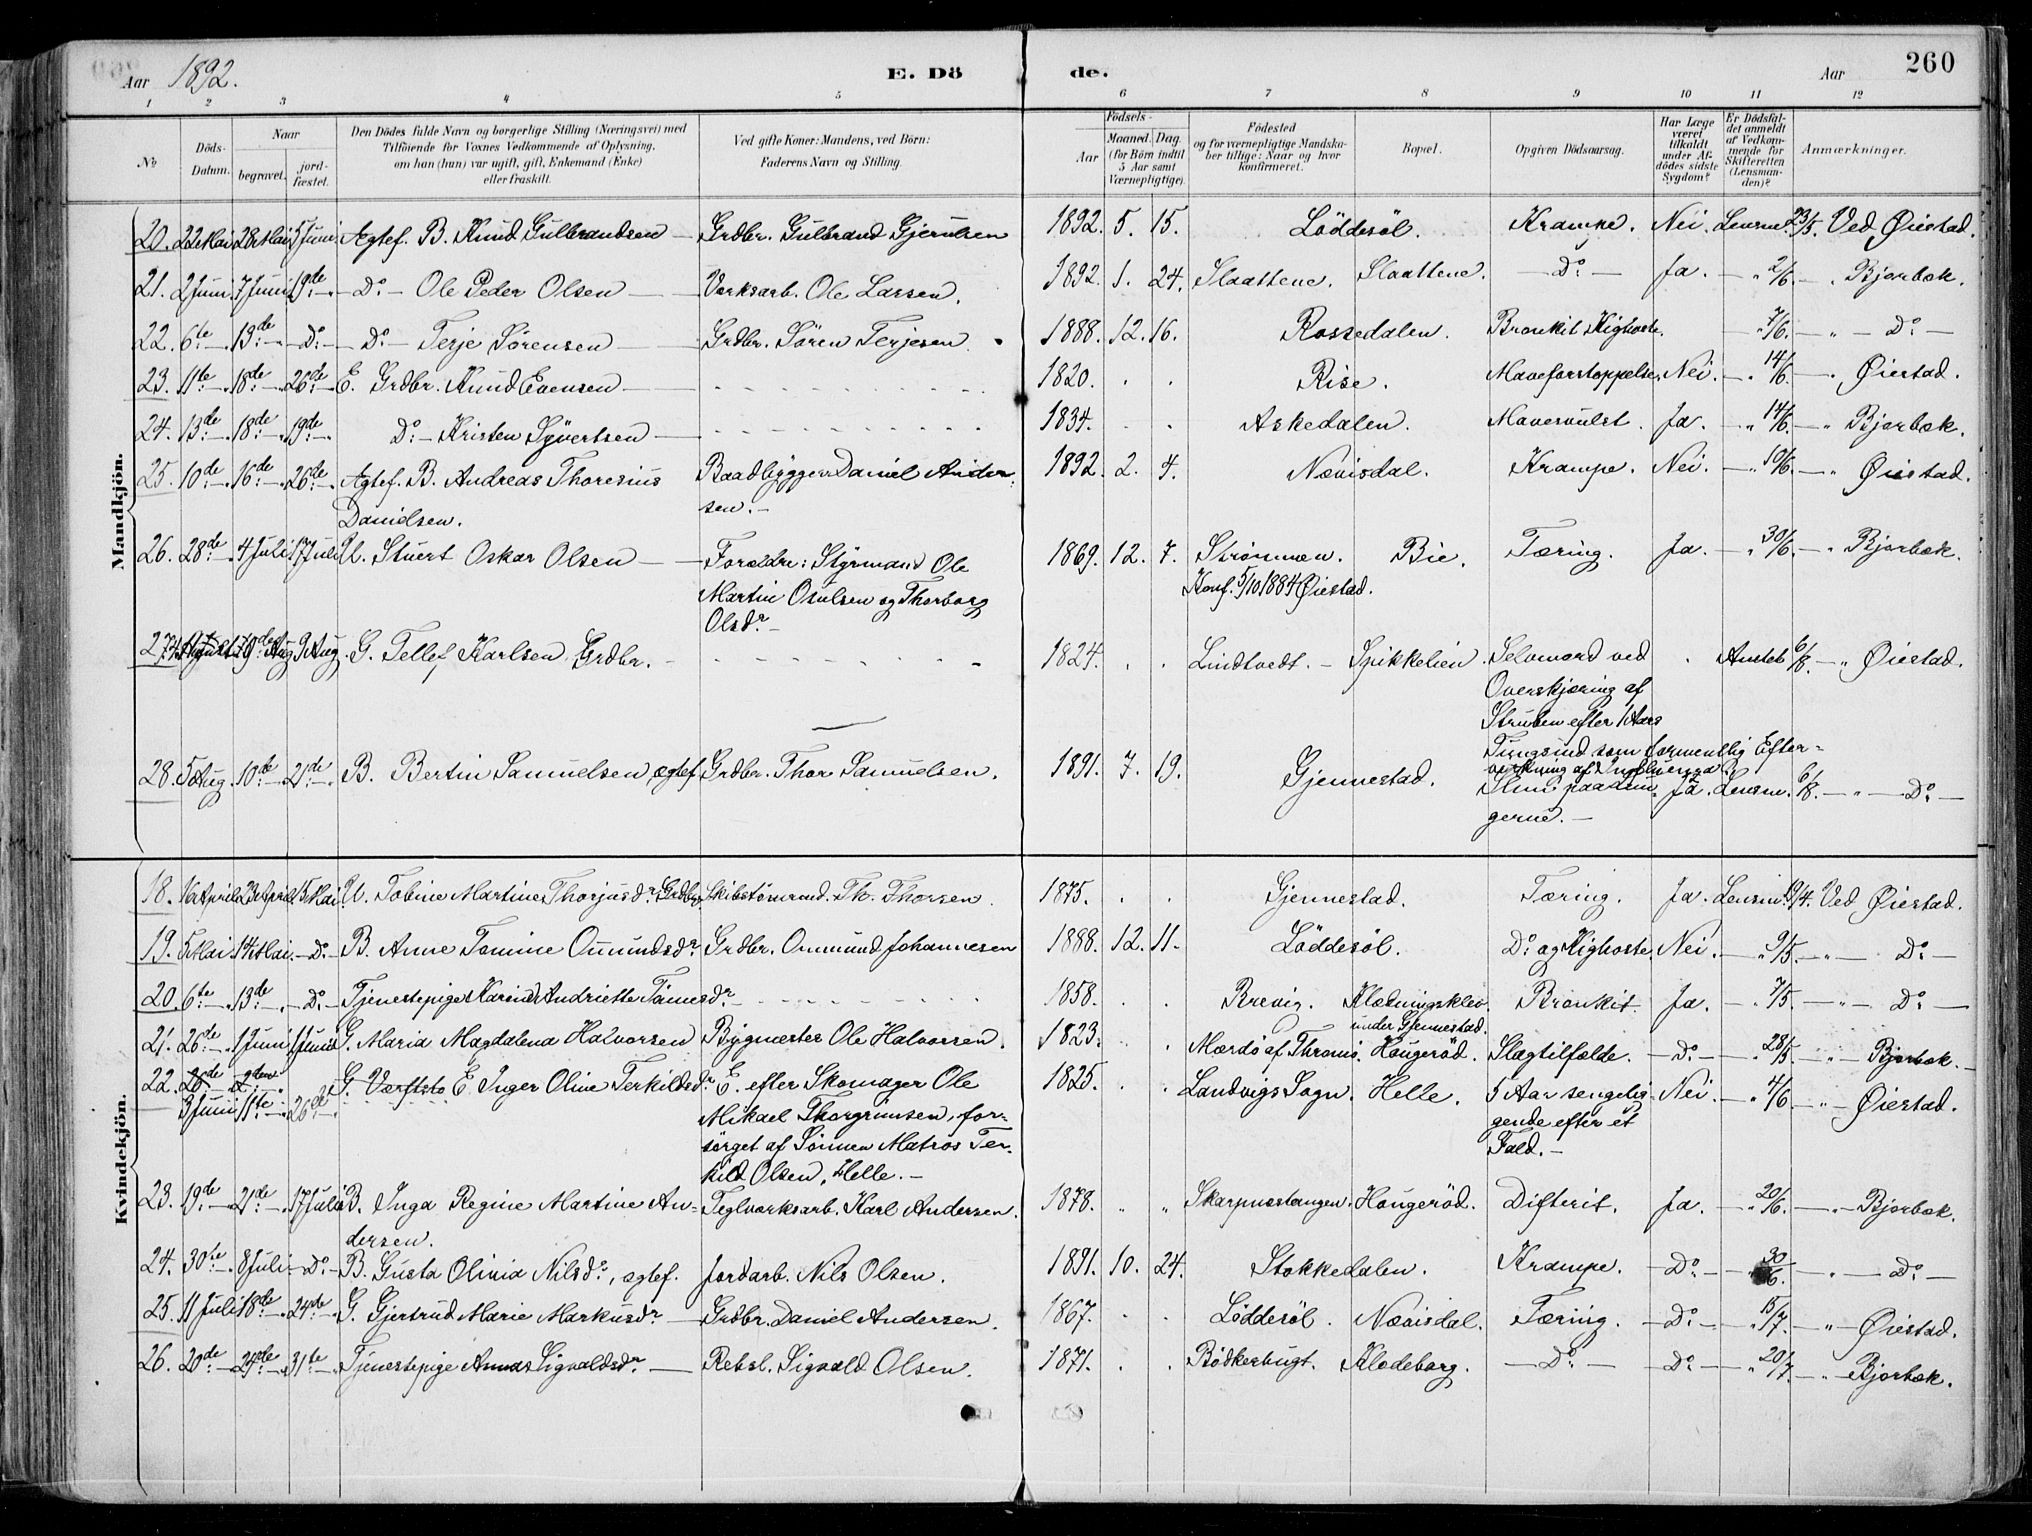 260
Aar 1892.
E. Dö de.
Aar
1 2 3 4 5 6 7 8 9 10 11 12
No
Döds-Datum.
Naar
begravet. jord-fæstet.
Den Dödes fulde Navn og borgerlige Stilling (Næringsvei) med
Tilföiende for Voxnes Vedkommende af Oplysning,
om han (hun) var ugift, gift, Enkemand (Enke)
eller fraskilt.
Ved gifte Koner: Mandens, ved Börn:
Faderens Navn og Stilling.
Födsels-
Aar Maaned. Dag.
(for Börn indtil 5 Aar samt Værnepligtige).
Födested
og for værnepligtige Mandska-
ber tillige: Naar og hvor
konfirmeret.
Bopæl.
Opgiven Dödsaarsag.
Har Læge været tilkaldt under Af-dödes sidste Sygdom?
Er Dödsfal-det anmeldt af Vedkom-mende for Skifteretten (Lensman-den)?
Anmærkninger.
Mandkjön.
20. 22 Mai 28 Mai 5 Juni Ægtef. B. Knud Gulbrandsen — Grdbr. Gulbrand Gjerulsen 1892. 5. 15. Löddesöl. Krampe. Nei. Lensm. 23/5. Ved Øiestad.
21. 2 Juni 7 Juni 19de — Do — Ole Peder Olsen — Værksarb. Ole Larsen. 1892. 1. 24. Slaattene. Slaattene. — Do — Ja. — " 2/6. — " Bjorbæk.
22. 6te — 13de — Do — Do — Terje Sörensen — Grdbr. Sören Terjesen. 1888. 12. 16. Rossedalen. Bronkit Kighoste. " 7/6. — " — Do —
23. 11te 18de 26de E. Grdbr. Knud Evensen — 1820. Rise. Maveforstoppelse. Nei. — " 14/6. — " Øiestad.
24. 13de 18de 19de Do — Kristen Syvertsen — 1834. Askedalen. Mavesvulst. Ja. — " 14/6. — " Bjorbæk.
25. 10de 16de 26de Ægtef. B. Andreas Thoresius Baadbygger Daniel Ander- 1892. 2. 4. Nævisdal. Krampe. Nei. — " 10/6. — " Øiestad.
Danielsen. sen. —
26. 28de 4 Juli 17 Juli U. Stuert Oskar Olsen — Forældre: Styrmand Ole 1869. 12. 7. Strömmen. Bie. Tæring. Ja. — " 30/6. — " Bjorbæk.
Martin Osulsen og Thorborg Konf. 5/10 1884 Øiestad.
Olsdr —
27. Aug. 9 Aug. G. Tellef Karlsen Grdbr. 1824. Lindtvedt. — Spikkelien. Selvmord ved Amtet 6/8. — " Øiestad.
Overskjæring af
Struben efter 1 Aars
Tungsind som formentlig Efter-
virkning af Influenza.
28. 5 Aug 10de 21de B. Bertin Samuelsen ægtef. Grdbr. Thor Samuelsen. 1891. 7. 19. Gjennestad. Slim paa Lun- Ja. Lensm. 6/8. — " — Do —
gerne. —
Kvindekjön.
18. 16 April 23 April 15 Mai U. Tobine Martine Thorjusdr. Grdbr. Skibstömmd. Th. Thorsen. 1875. Gjennestad. Tæring. Ja. Lensm. 19/4. Ved Øiestad.
19. 5 Mai 14 Mai — Do — B. Anne Tomine Omundsdr Grdbr. Ommund Johannesen 1888. 12. 11. Löddesöl. Do og Kighoste. Nei. — " 9/5. — " — Do —
20. 6te — 13de — Do — Tjenestepige Karine Andriette Tönnesdr 1858. Brevig. Klædningsklev Bronkit. Ja. — 7/5. — " — Do —
under Gjennestad.
21. 26de — 1 Juni 1 Juni G. Maria Magdalena Halvorsen Bygmester Ole Halvorsen. 1823. Mærdö af Thromö. Hougeröd. Slagtilfælde. — Do — — 28/5 — " — Bjorbæk. —
22. 26de 2den G. Værftsto E Inger Oline Terkildsdr E. efter Skomager Ole 1825. Landvigs Sogn. Helle. 5 Aar sengelig- Nei. — " 4/6. — " — Øiestad.
3 Juni 11te 26de Mikael Thorgrimsen, for- gende efter et
sörget af Sönnen Matros Ter- Fald. —
kild Olsen, Helle. —
23. 19de 21de 17 Juli B. Inga Regine Martine An- Teglværksarb. Karl Andersen. 1878. " " Skarpnestangen. Hougeröd. Difterit. Ja. — " 20/6. — " — Bjorbæk.
dersen.
24. 30te 8 Juli — Do — B. Gusta Olivia Nilsdr, ægtef. Jordarb. Nils Olsen. 1891. 10. 24. Stokkedalen. Krampe. — Do — 30/6. " — Do —
25. 11 Juli 18de 24de G. Gjertrud Marie Markusdr — Grdbr. Daniel Andersen. 1867. Löddesöl. Nævisdal. Tæring. — Do — " 15/7. — " — Øiestad.
26. 20de 24de 31te Tjenestepige Anna Sigvaldsdr — Rebsl. Sigvald Olsen. 1871. Bödkerbugt. Klodeborg. — Do — — Do — " 20/7. — " — Bjorbæk.